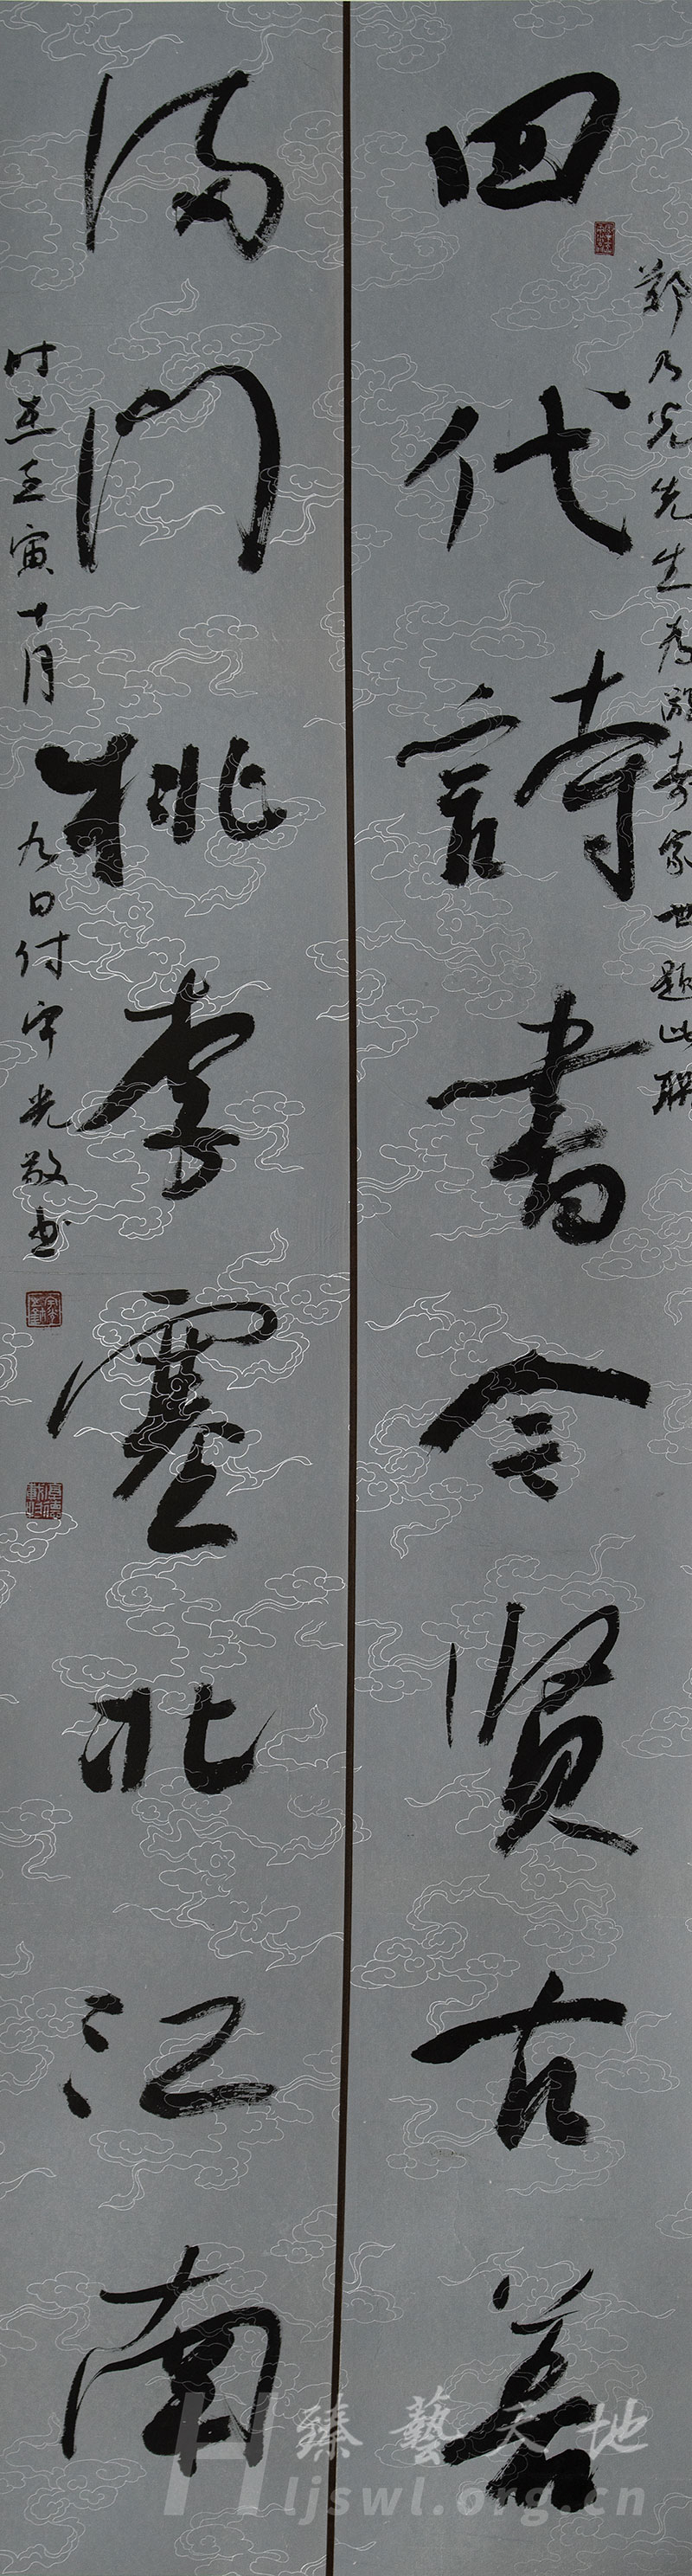 四代詩書令賢古若
鄭乃光先生為游寿家世題此聯
滿門桃李塞北江南
时在壬寅十月
九日付宇光敬书
臻藝天地
Hljswl.org.cn